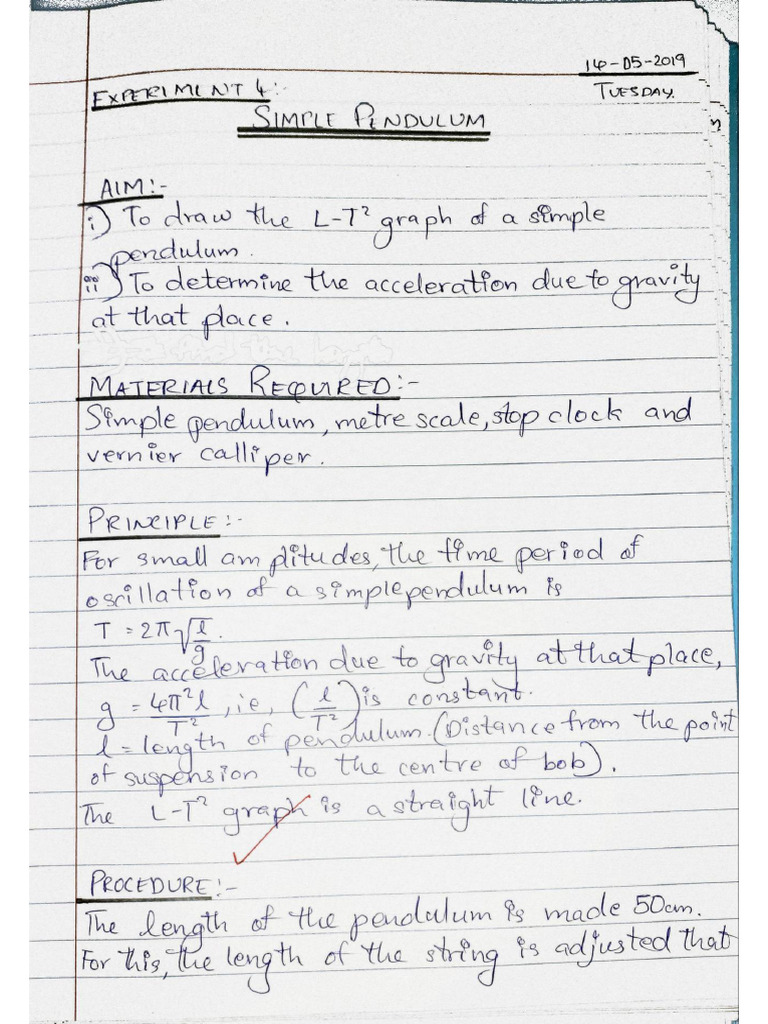 14-05-2019
EXPERIMENT 4:-
TUESDAY.
SIMPLE PENDULUM
AIM:-
i) To draw the L-T² graph of a simple
pendulum.
ii) To determine the acceleration due to gravity
at that place.
MATERIALS REQUIRED:-
Simple pendulum, metre scale, stop clock and
vernier calliper.
PRINCIPLE:-
For small amplitudes, the time period of
oscillation of a simple pendulum is
T = 2π√(l/g).
The acceleration due to gravity at that place,
g = 4π²l/T², ie, (l/T²) is constant.
l = length of pendulum. (Distance from the point
of suspension to the centre of bob).
The L-T² graph is a straight line.
PROCEDURE:-
The length of the pendulum is made 50cm.
For this, the length of the string is adjusted that